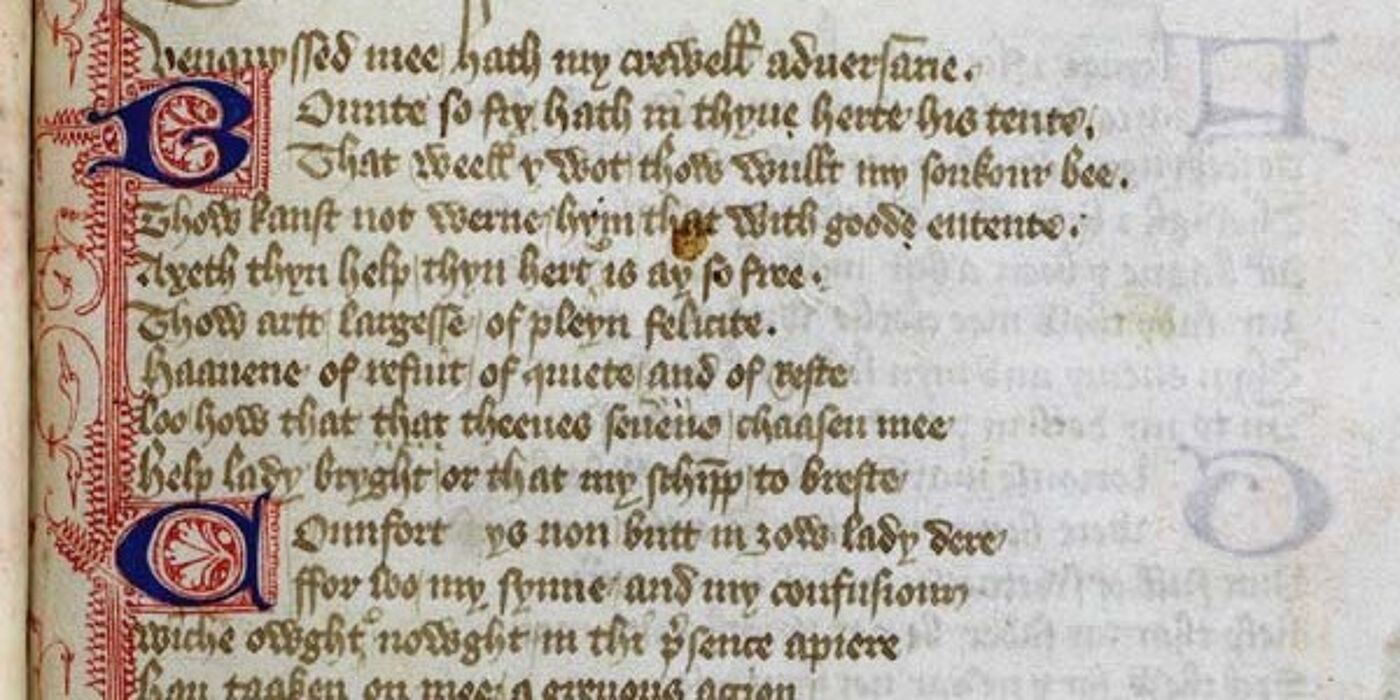 Venquyssed mee hath my crewell aduersarie.
Bounte so fix hath in thyne herte his tente.
That weell y wot thow wullt my soukour bee.
Thow kanst not werne hym that with goode entente.
Axeth thyn help thyn hert is ay so free.
Thow artt largesse of pleyn felicite.
Haauene of refuit of quiete and of reste
Loo how that that theeues seuene chaasen mee
Help lady bryght or that my schipp to breste
Counfort ys non butt in ȝow lady dere
ffor loo my synne and my confusioun
wiche owght nowght in thi presence apiere
Han taaken on mee a greuous accion